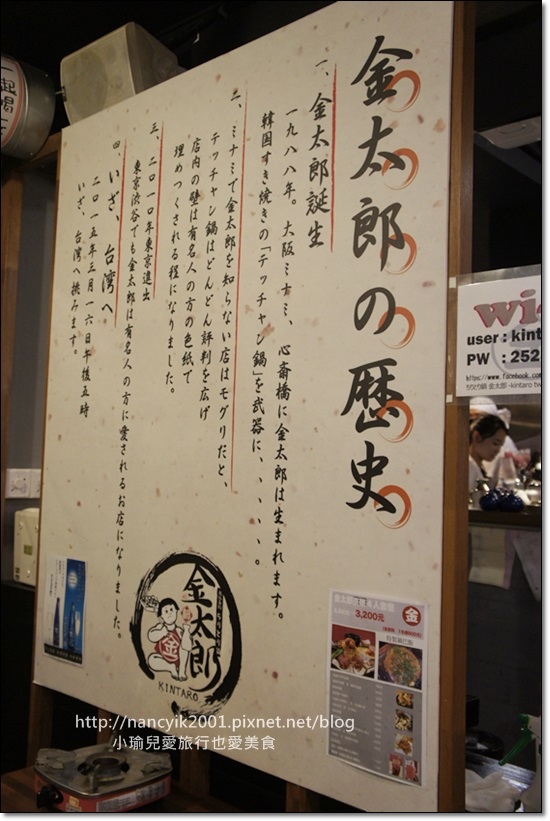 金太郎の歴史
一、金太郎誕生
一九八八年。大阪ミナミ、心斎橋に金太郎は生まれます。
韓国すき焼きの「テッチャン鍋」を武器に、、、、、。
二、ミナミで金太郎を知らない店はモグリだと、
テッチャン鍋はどんどん評判を広げ
店内の壁は有名人の方の色紙で
埋めつくされる程になりました。
三、二〇一〇年東京進出
東京渋谷でも金太郎は有名人の方に愛されるお店になりました。
四、いざ、台湾へ
二〇一五年三月一六日午後五時
いざ、台湾へ挑みます。
金太郎
金
KINTARO
一起喝
wi
user : kint
PW : 252
https://www.facebook.com
金太郎 -kintaro
金
3,200元
http://nancyik2001.pixnet.net/blog
小瑜兒愛旅行也愛美食